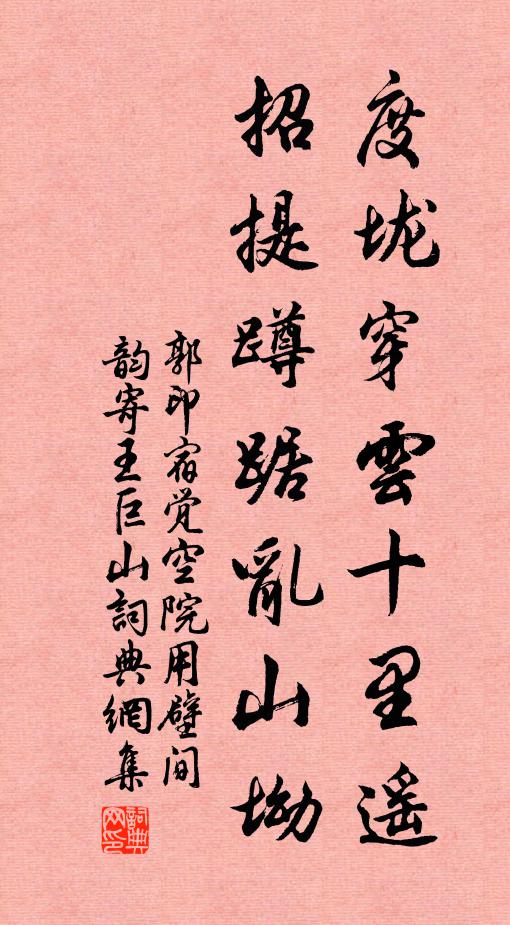 度垅穿雲十里遥
招提蹲踞亂山坳
郭印宿觉空院用壁间
韵寄王巨山詞典網集
詞典网印